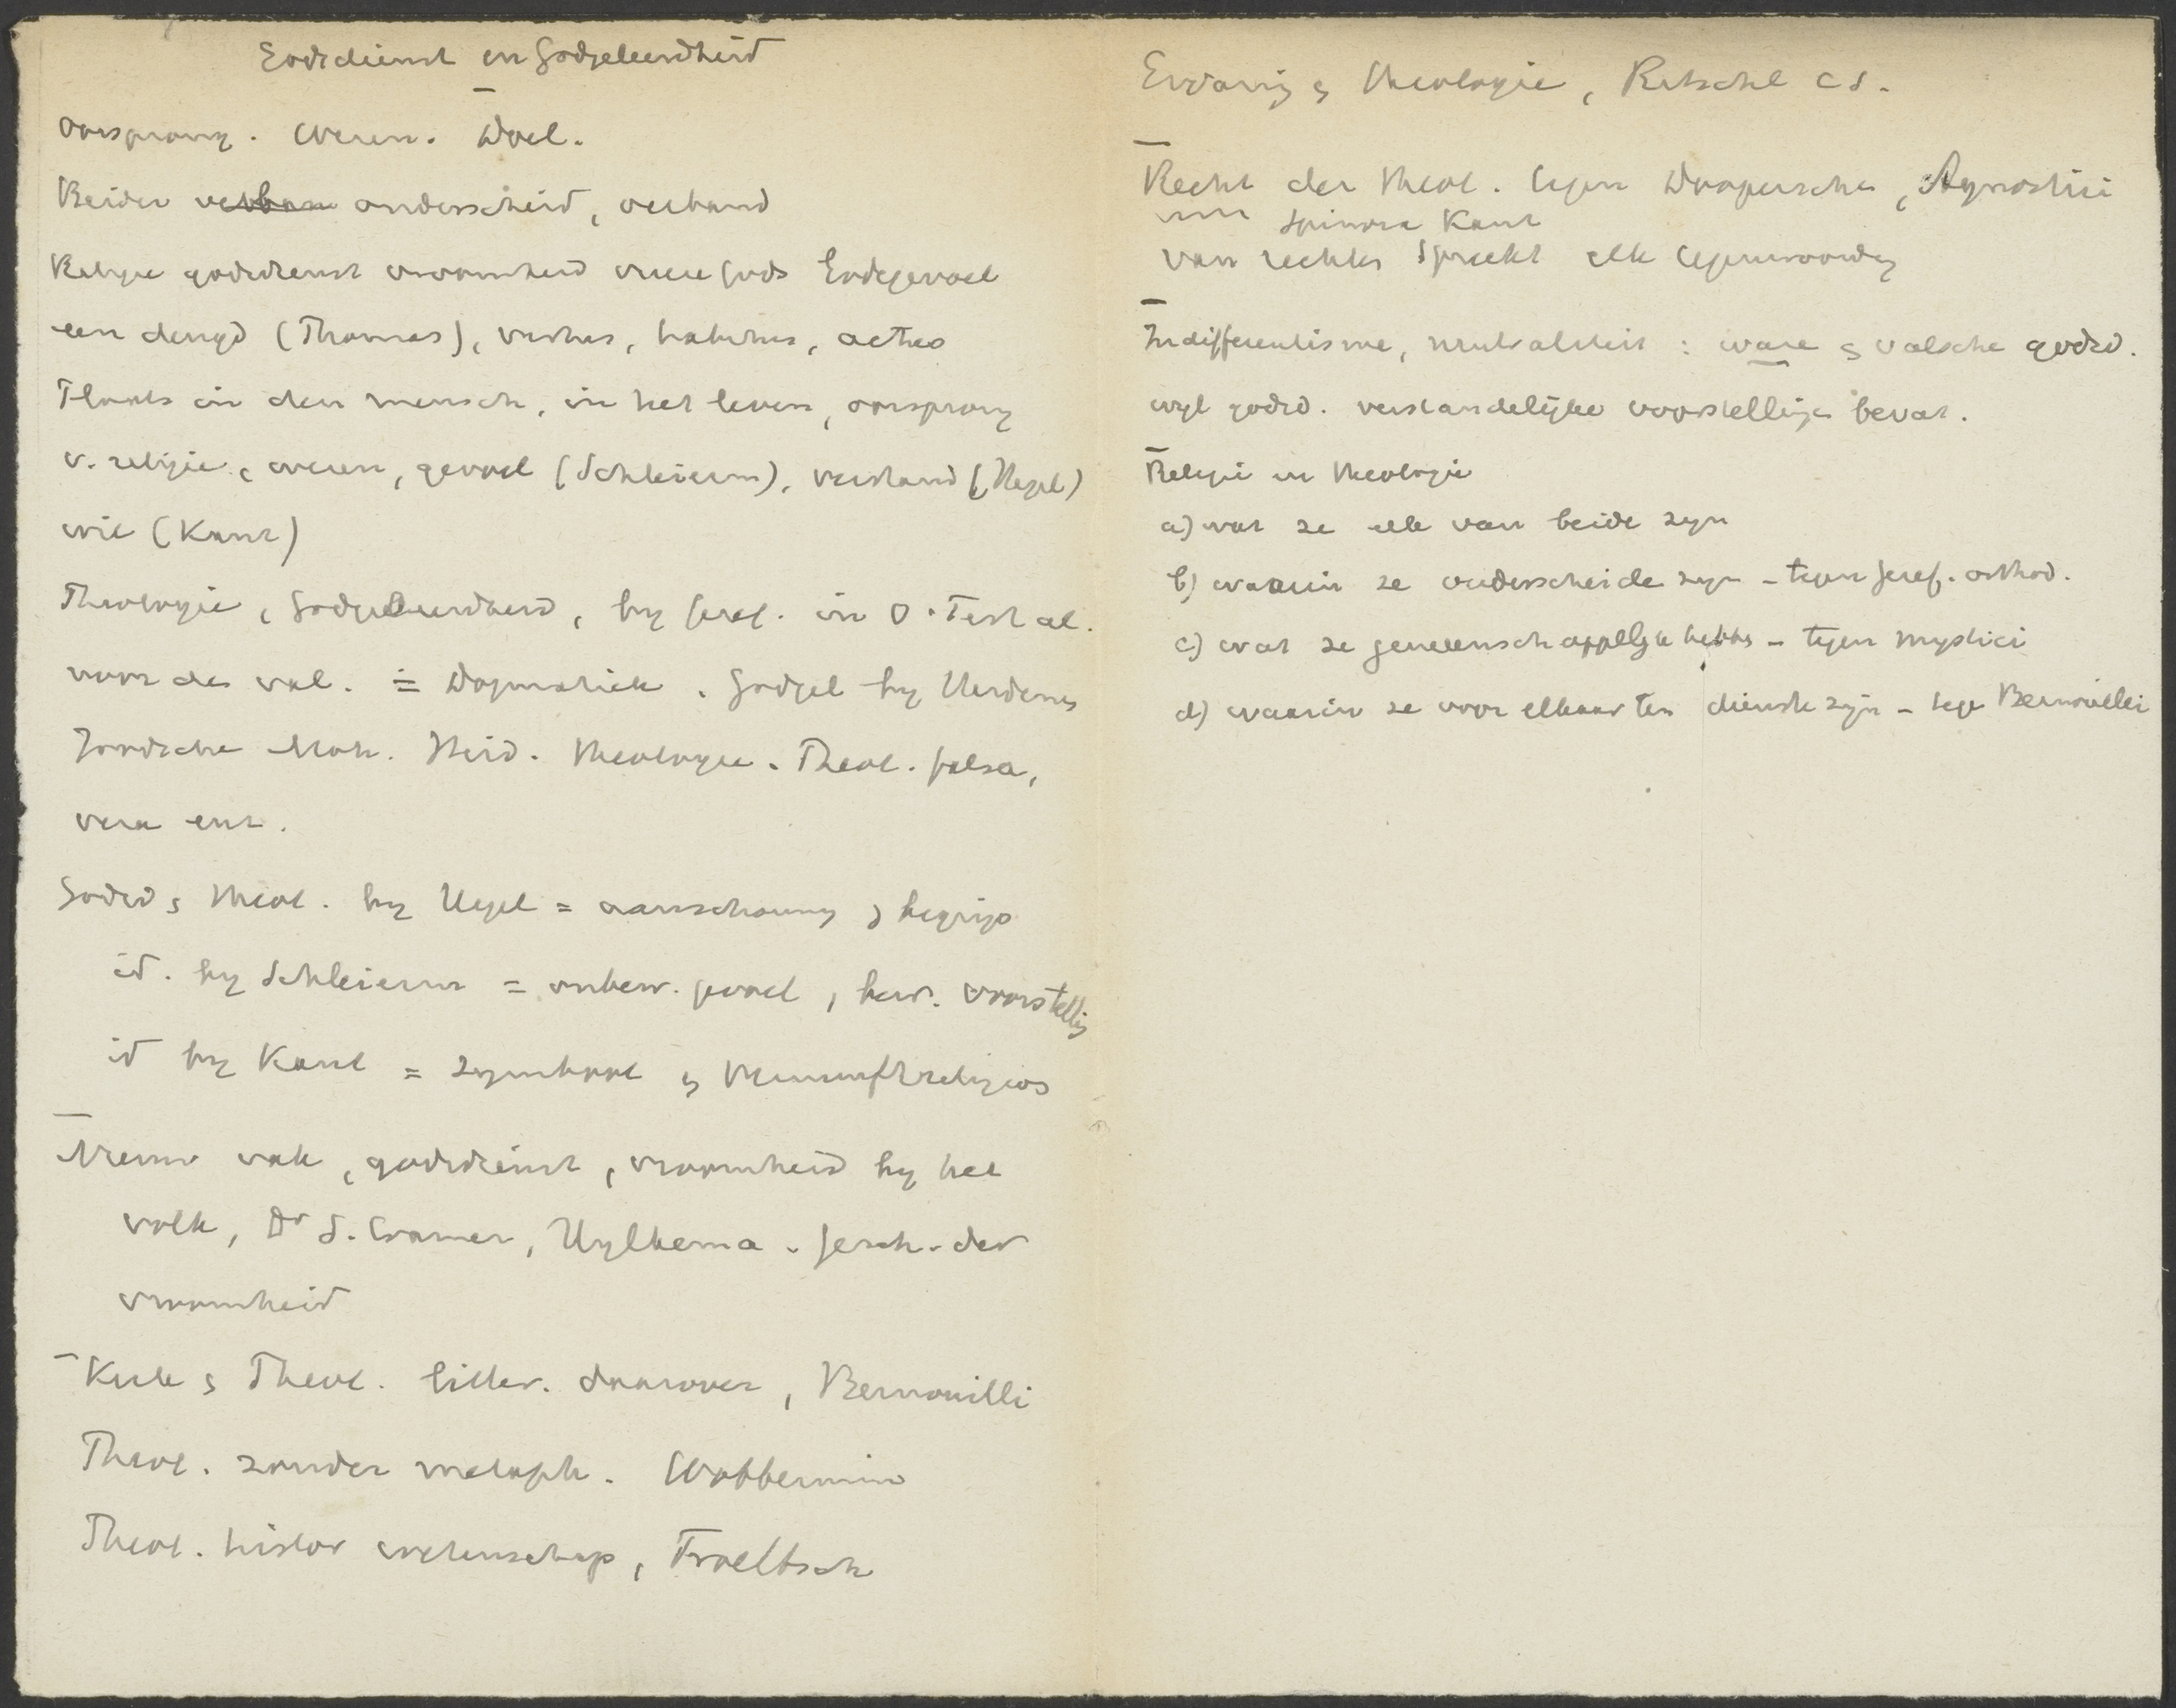 Godsdienst en Godgeleerdheid
Oorsprong. Wezen. Doel.
Beider verban onderscheid, verband
Religie godsdienst vroomheid vreeze Gods Godsgevoel
een deugd (Thomas), virtus, habitus, actus
Plaats in den mensch, in het leven, oorsprong
v. religie, wezen, gevoel (Schleierm), verstand (Hegel)
wil (Kant)
Theologie, Godgeleerdheid, by Geref. in O. Test al.
voor de val. = Dogmatiek. Godgel by Heidenen
Joodsche Moh. Heid. theologie. Theol. falsa,
vera enz.
Godsd & theol. by Hegel = aanschouwing & begrip
id. by Schleierm = onbew. gevoel, bew. voorstelling
id by Kant = symbool & Vernunftreligion
Nieuw vak, godsdienst, vroomheid by het
volk, Dr S. Cramer, Hylkema. Gesch. der
vroomheid
Kerk & Theol. litter. daarover, Bernouilli
Theol. zonder metaph. Wobbermin
Theol. histor wetenschap, Troeltsch
Ervaring & theologie, Ritschl c s.
Recht der theol. tegen Agnostici
Spinoza Kant
van rechten spreekt elk tegenwoordig
Indifferentisme, neutraliteit : ware & valsche godsd.
wyl godsd. verstandelijke voorstellingen bevat.
Religie en theologie
a) wat ze elk van beide zyn
b) waarin ze onderscheide zyn – tegen Geref. orthod.
c) wat ze gemeenschappelyk hebben – tegen mystici
d) waarin ze voor elkaar ten dienste zijn – tege Bernouilli